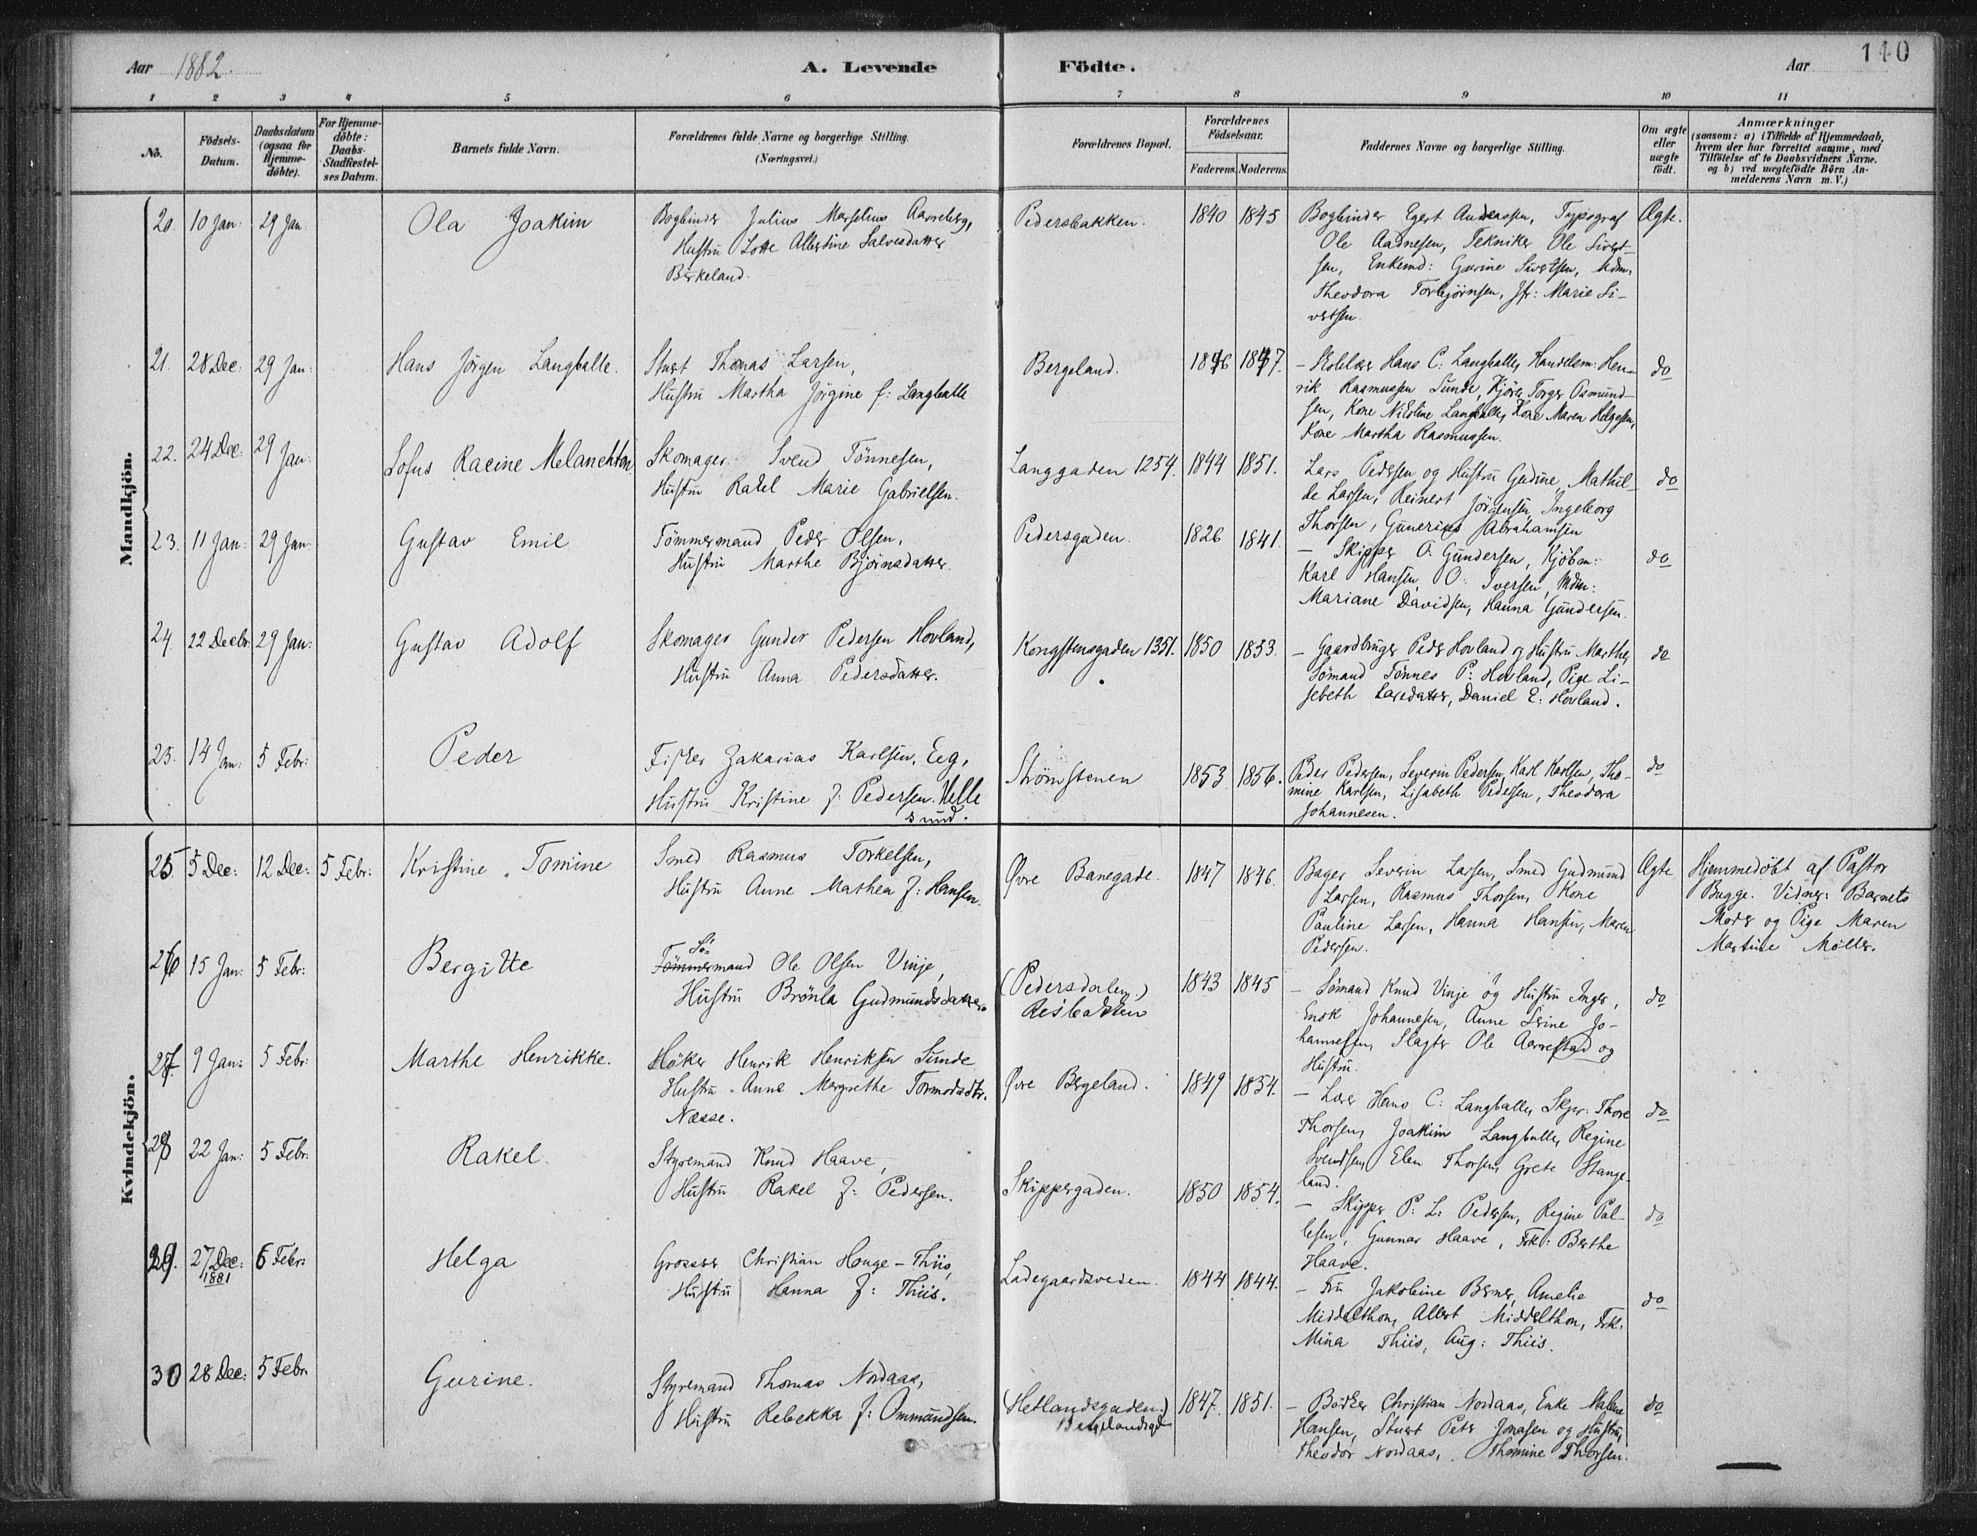 Aar 1882. A. Levende Födte. Aar 140
1 2 3 4 5 6 7 8 9 10 11
No. Födsels-Datum. Daabsdatum (ogsaa for Hjemme-döbte). For Hjemme-döbte: Daabs-Stadfæstel-ses Datum. Barnets fulde Navn. Forældrenes fulde Navne og borgerlige Stilling. (Næringsvei.) Forældrenes Bopæl. Forældrenes Födselsaar. Faderens. Moderens. Faddernes Navne og borgerlige Stilling. Om ægte eller uægte födt. Anmærkninger (saasom: a) i Tilfælde af Hjemmedaab, hvem der har forrettet samme, med Tilföielse af to Daabsvidners Navne. og b) ved uægtefödte Börn An-melderens Navn m. V.)
Mandkjön.
20. 10 Jan: 29 Jan. Ola Joakim Bogbinder Julius Marselius Aarreberg, Pedersbakken. 1840 1845 Bogbinder Egert Andreassen, Typograf Ægte.
Hustru Lotte Albertine Salvesdatter Ole Aadnesen, Tekniker Ole Sivert-
Birkeland. sen, Enkemd: Gurine Sivertsen, Mdm.
Theodora Torbjørnsen, Jfr: Marie Si-
vertsen
21. 28 Dec: 29 Jan: Hans Jörgen Langballe. Stuert Thomas Larsen, Bergeland. 1846 1847. – Skolelær Hans C: Langballe, Handelsm: Hen- do
Hustru Martha Jörgine f: Langballe rik Rasmussen Sunde, Torger Osmund-
sen, Kone Nikoline Langballe, Kone Maren Helgesen,
Kone Martha Rasmussen.
22. 24 Dec: 29 Jan: Sofus Racine Melanchton Skomager Svend Tönnesen, Langgaden 1254. 1844 1851. Lars Pedersen og Hustru Gudine, Mathil- do
Hustru Rakel Marie Gabrielsen. de Larsen, Reinert Jörgensen, Ingeborg
Thorsen, Gunerius Abrahamsen
23. 11 Jan: 29 Jan Gustav Emil Tömmermand Peder Olsen, Pedersgaden. 1826 1841. – Skipper O. Gundersen, Kjöbm: do
Hustru Marthe Björnsdatter Karl Hansen, O: Iversen, Mdm:
Mariane Davidsen, Hanna Gundersen.
24. 22 Decbr. 29 Jan: Gustav Adolf Skomager Gunder Pedersen Hovland, Kongstensgaden 1351. 1850 1853. – Gaardbruger Peder Hovland og Hustru Marthe, do
Hustru Anna Pedersdatter. Sömand Tönnes P: Hovland, Pige Li-
sebeth Larsdatter, Daniel E: Hovland.
25. 14 Jan: 5 Febr: Peder Fisker Zakarias Karlsen, Eeg, Strömstenen 1853 1856. Peder Pedersen, Severin Pedersen, Karl Karlsen, Tho- do
Hustru Kristine f: Pedersen. Helle mine Karlsen, Lisabeth Pedersen, Theodora
sund. Johannesen.
Kvindekjön.
25. 5 Dec: 12 Dec: 5 Febr: Kristine Tomine Smed Rasmus Torkelsen, Øvre Banegade. 1847 1846. Bager Severin Larsen, Smed Gudmund Ægte Hjemmedöbt af Pastor
Hustru Anne Mathea f: Hansen. Larsen, Rasmus Thorsen, Kone Bugge. Vidner: Barnets
Pauline Larsen, Hanna Hansen, Maren Moder og Pige Maren
Pedersen. Martine Möller.
26 15 Jan: 5 Febr: Bergitte Sö-
Tömmermand Ole Olsen Vinje, (Pedersdalen,) 1843 1845 – Sömand Knud Vinje og Hustru Inger, do
Hustru Brönla Gudmundsdatter. Reisbakken Enok Johannesen, Anne Serine Jo-
hannessen, Slagter Ole Aarrestad og
Hustru.
27. 9 Jan: 5 Febr: Marthe Henrikke. Höker Henrik Henriksen Sunde Øvre Bergeland. 1849 1854. – Lærer Hans C: Langballe, Skpr: Thore do
Hustru Anne Margrethe Tormodsdtr. Thorsen, Joakim Langballe, Regine
Næsse. Svendsen, Elen Thorsen, Grete Stange-
land.
28 22 Jan: 5 Febr: Rakel. Styrmand Knud Haave, Skippergaden. 1850 1854. – Skipper P: L: Pedersen, Regine Pal- do
Hustru Rakel f: Pedersen. lesen, Gunnar Haave, Frk: Berthe
Haave.
29. 27 Dec: 1881 6 Febr: Helga Grosser Christian Houge-Thiis, Ladegaardsveden. 1844 1844. – Fru Jakobine Berner, Amelie do
Hustru Hanna f: Thiis. Middelthon, Albert Middelthon, Frk:
Mina Thiis, Aug: Thiis.
30 28 Dec: 5 Febr. Gurine. Styrmand Thomas Nordaas, (Hetlandsgaden.) 1847. 1851. – Bödker Christian Nordaas, Enke Malene do
Hustru Rebekka f: Ommundsen. Bergelandsgd Hansen, Stuert Peter Jonasen og Hustru,
Theodor Nordaas, Thomine Thorsen.